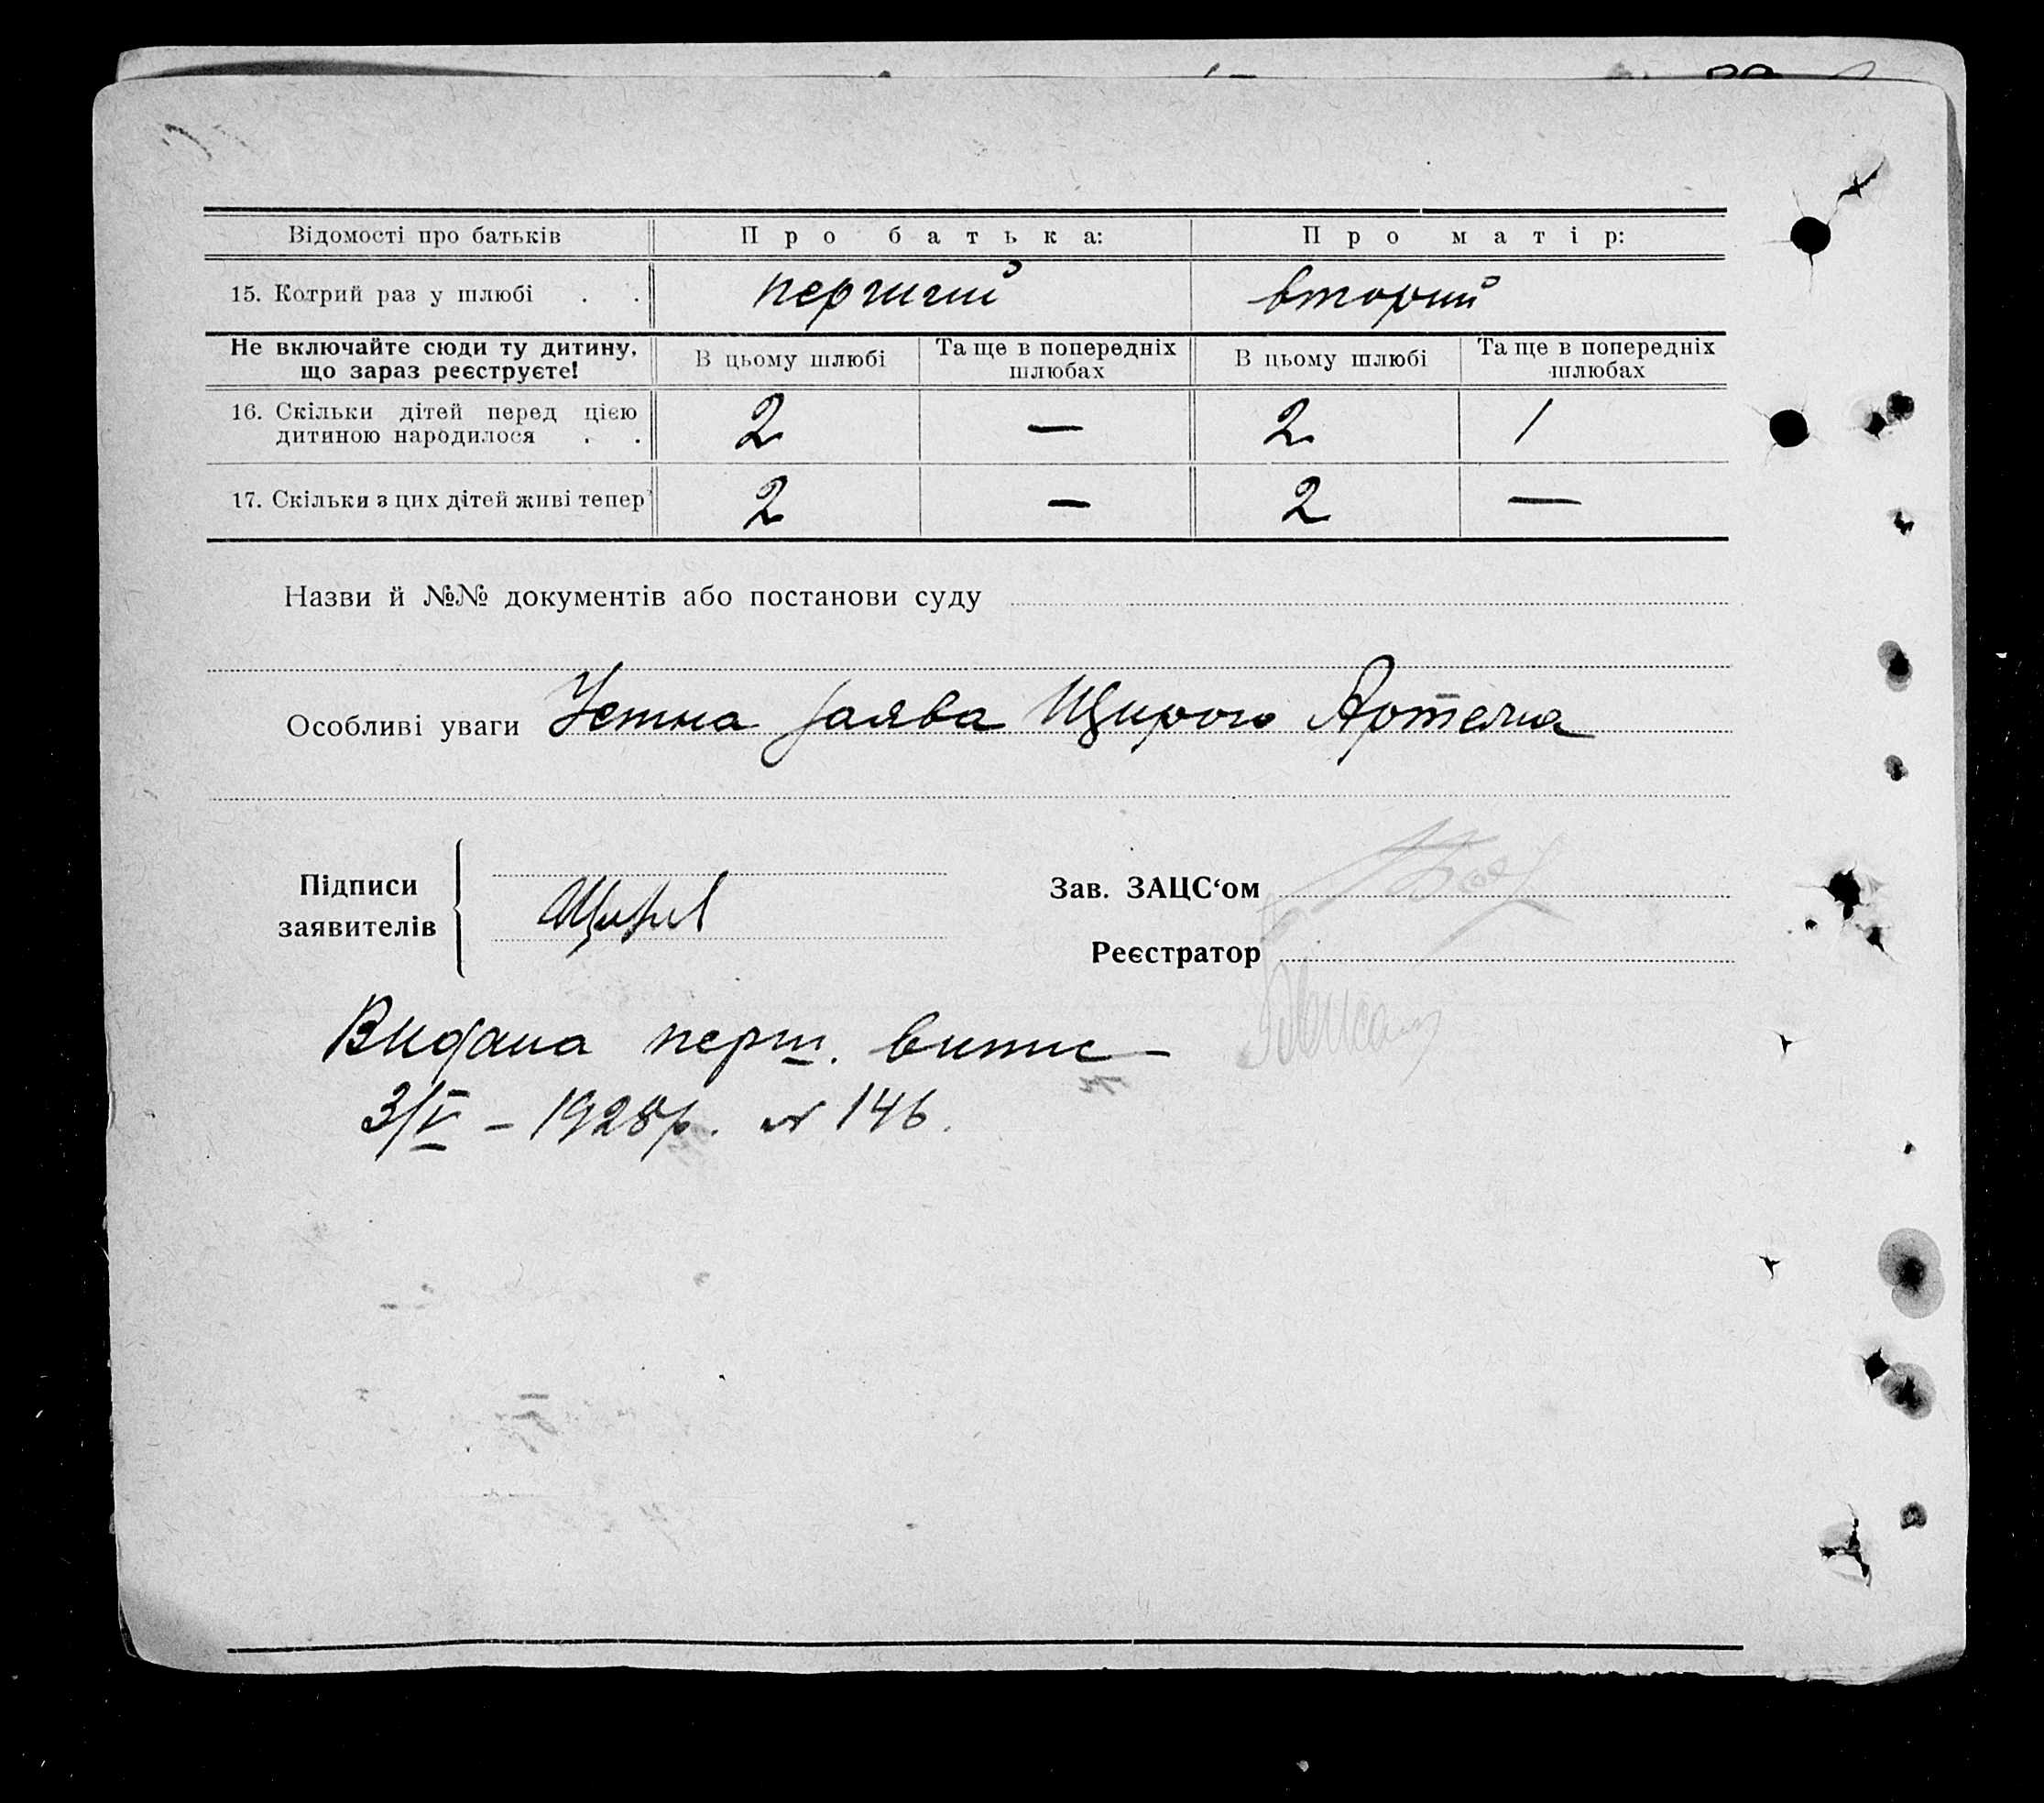 Відомості про батьків Про батька: Про матір:
15. Котрий раз у шлюбі . . перший вторий
Не включайте сюди ту дитину, що зараз реєструєте! В цьому шлюбі Та ще в попередніх шлюбах В цьому шлюбі Та ще в попередніх шлюбах
16. Скільки дітей перед цією
дитиною народилося . . 2 — 2 1
17. Скільки з цих дітей живі тепер 2 — 2 —
Назви й №№ документів або постанови суду
Особливі уваги Устна заява Щирого Артема
Підписи
заявителів
Зав. ЗАЦС‘ом
Реєстратор
Видана перш. випис —
3/V – 1928р. № 146.